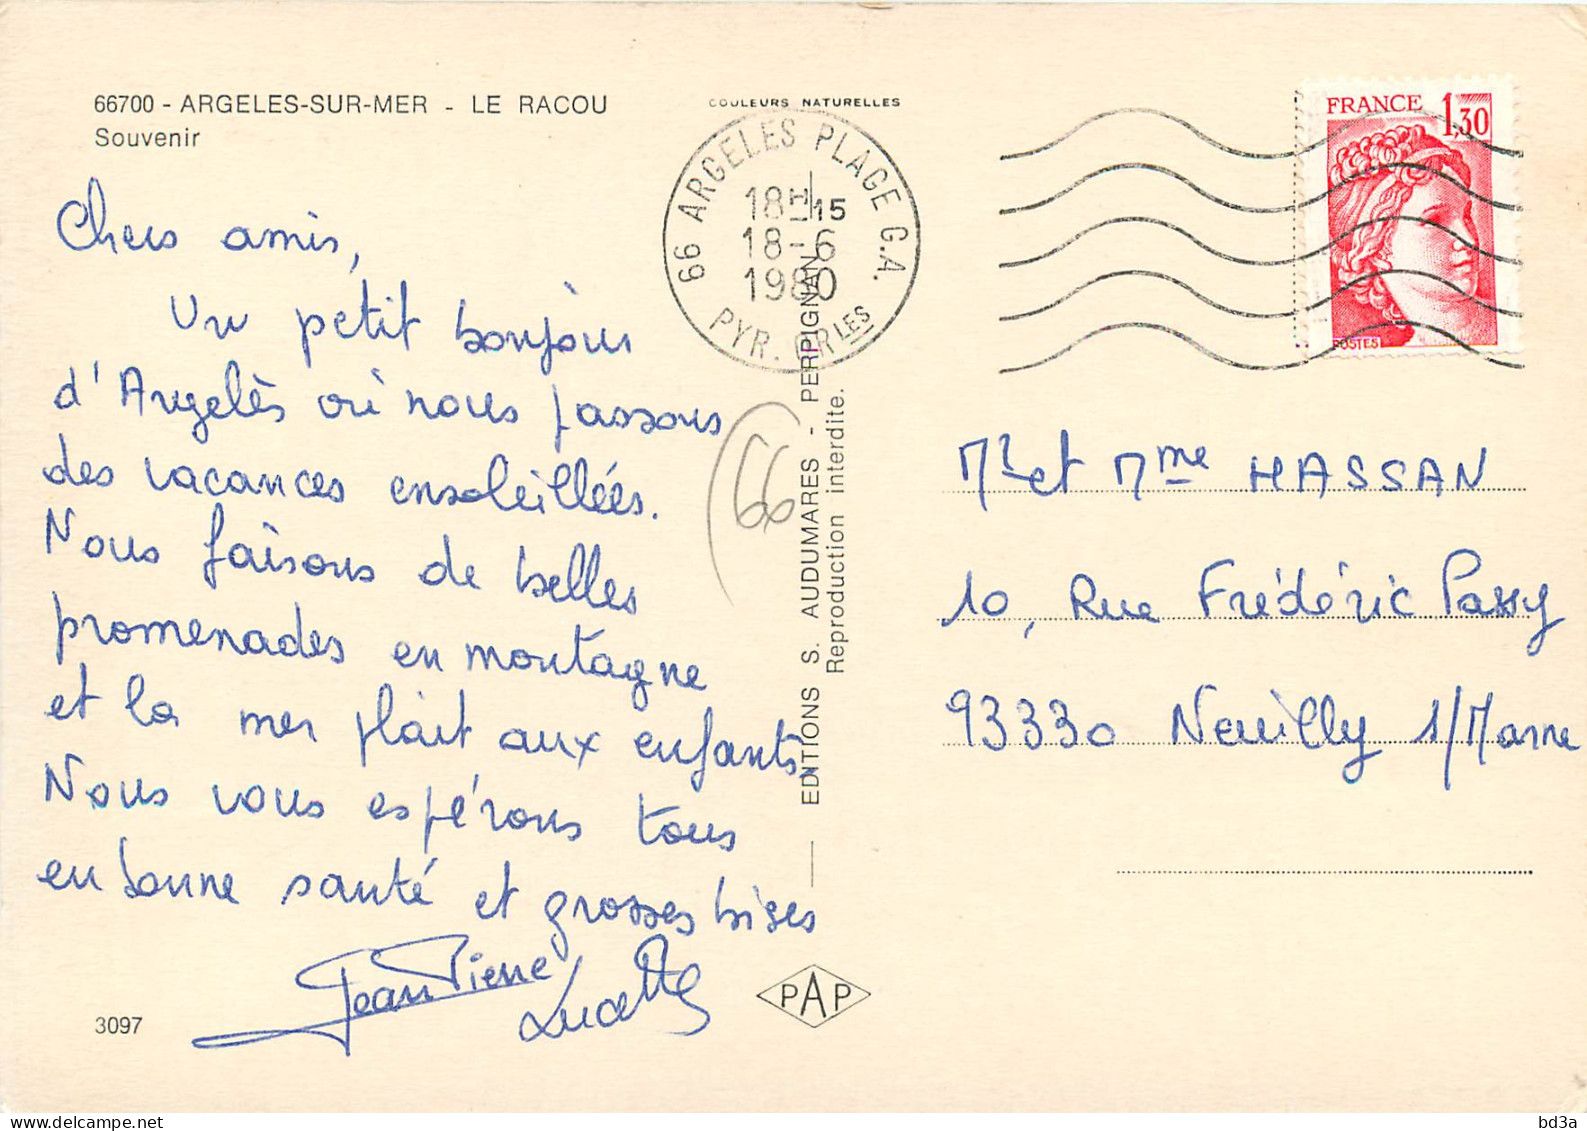 66700 - ARGELES-SUR-MER - LE RACOU
Souvenir
COULEURS NATURELLES
66 ARGELES PLAGE C.A.
18H15
18-6
1980
PYR. ORLES
FRANCE 1,30
POSTES
Chers amis,
Un petit bonjour
d'Argelès où nous passons
des vacances ensoleillées.
Nous faisons de belles
promenades en montagne
et la mer plait aux enfants.
Nous vous espérons tous
en bonne santé et grosses bises
Jean Pierre
Lucette
66
EDITIONS S. AUDUMARES - PERPIGNAN -
Reproduction interdite.
Mr et Mme HASSAN
10, Rue Frédéric Passy
93330 Neuilly s/Marne
3097
PAP
bd3a